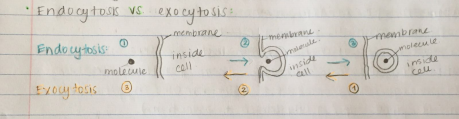 • Endocytosis vs exocytosis:
membrane membrane membrane
Endocytosis: ① ② ③
molecule molecule
inside cell inside cell inside cell
molecule
Exocytosis ③ ② ①